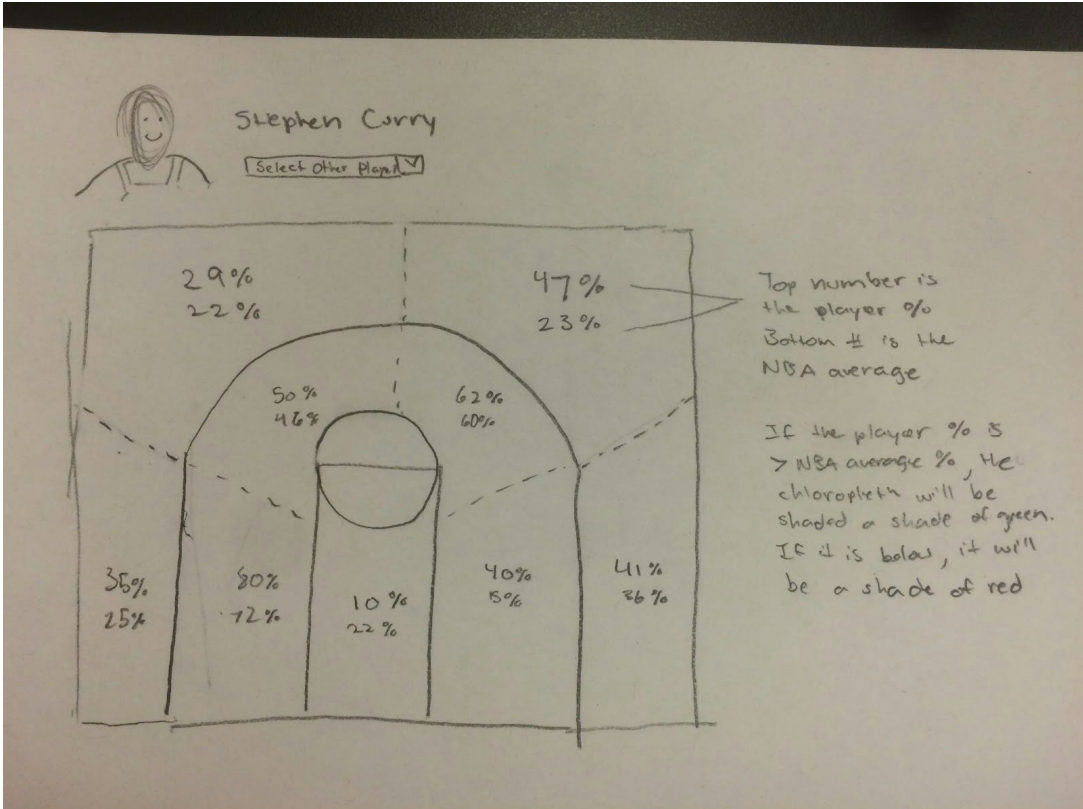 Stephen Curry
Select Other Player
29%
22%
47%
23%
50%
46%
62%
60%
35%
25%
80%
72%
10%
22%
40%
15%
41%
36%
Top number is
the player %
Bottom # is the
NBA average
If the player % is
> NBA average %, the
chloropleth will be
shaded a shade of green.
If it is below, it will
be a shade of red